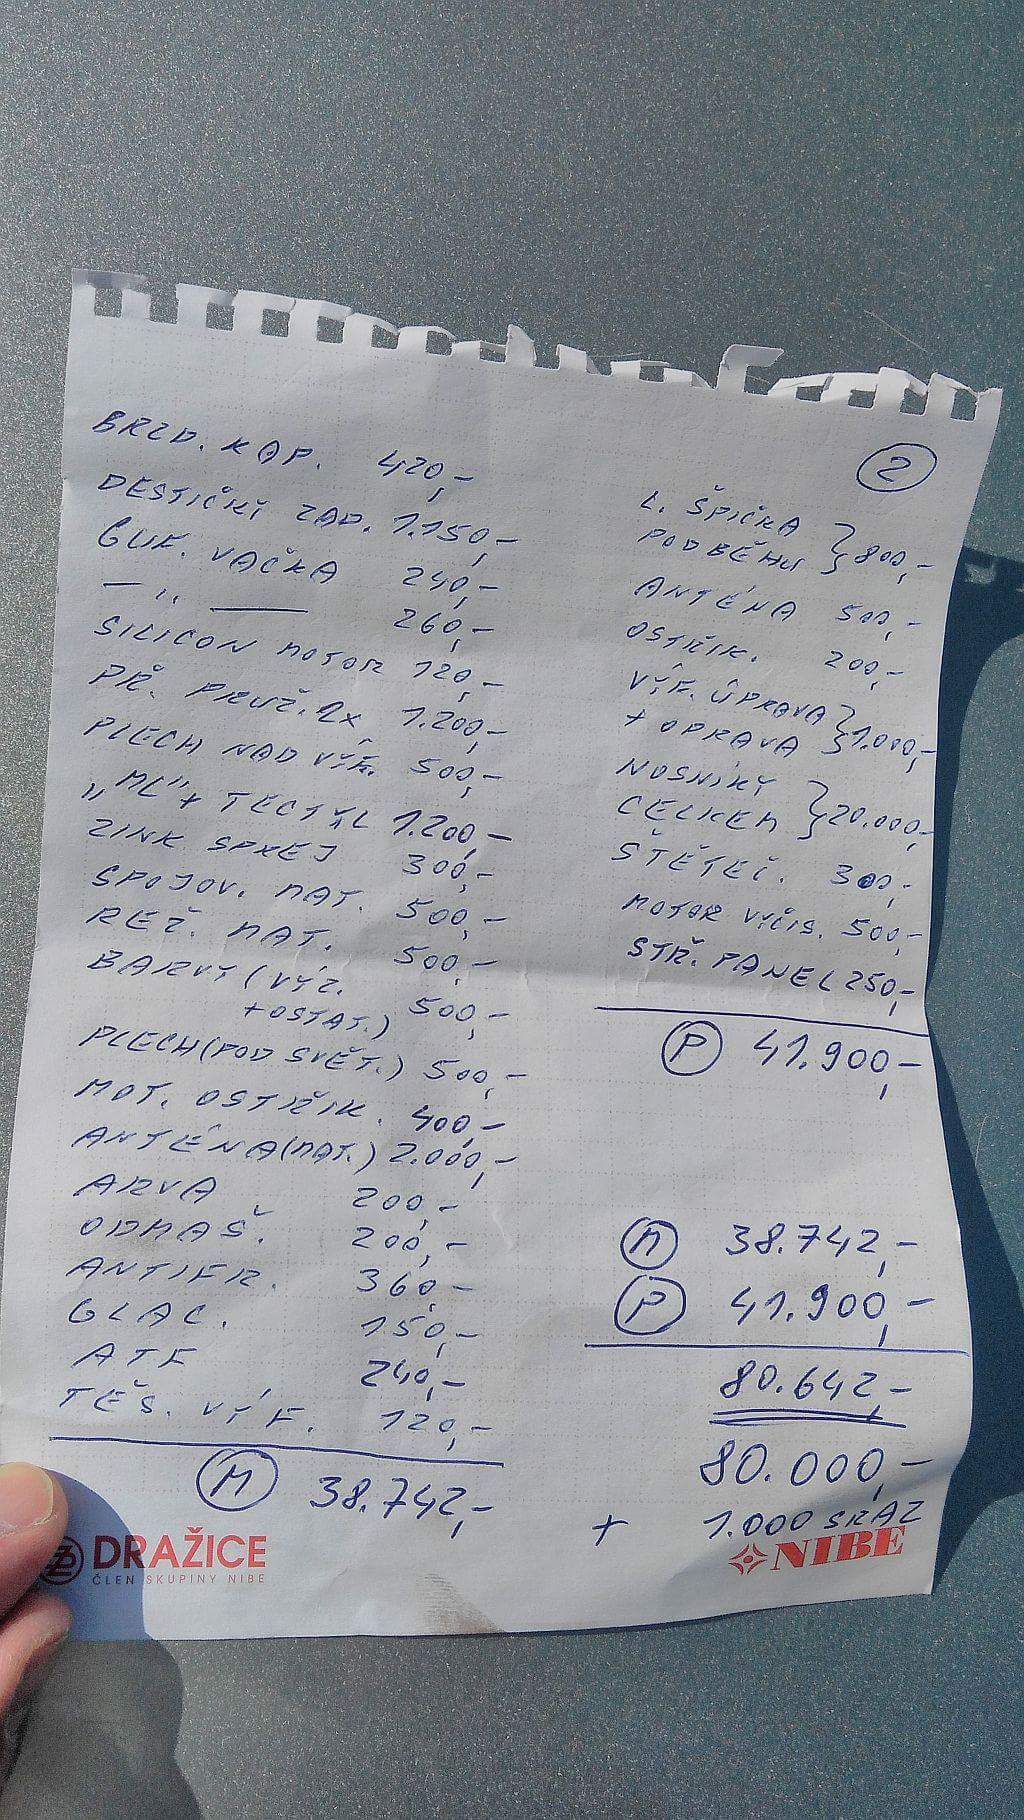 BRZD. KAP. 420,-
DESTIČKY ZAD. 1.150,-
GUF. VAČKA 240,-
— ,, —— 260,-
SILICON MOTOR 120,-
PŘ. PRUŽ. 2x 1.200,-
PLECH NAD VÝF. 500,-
„ML" + TECTYL 1.200,-
ZINK SPREJ 300,-
SPOJOV. MAT. 500,-
REŽ. MAT. 500,-
BARVY (VÝZ.
+OSTAT.) 500,-
PLECH (POD SVĚT.) 500,-
MOT. OSTŘIK. 400,-
ANTÉNA (MAT.) 2.000,-
ARVA 200,-
ODMAŠ. 200,-
ANTIFR. 360,-
GLAC. 150,-
ATF 240,-
TĚS. VÝF. 120,-
M 38.742,-
2
L. ŠPIČKA
PODBĚHU } 800,-
ANTÉNA 500,-
OSTŘIK. 200,-
VÝF. ÚPRAVA
+ OPRAVA } 1.000,-
NOSNÍKY
CELKEM } 20.000,-
ŠTĚTEČ. 300,-
MOTOR VYČIS. 500,-
STŘ. PANEL 250,-
P 41.900,-
M 38.742,-
P 41.900,-
80.642,-
80.000,-
+ 1.000 SRAZ
DRAŽICE
ČLEN SKUPINY NIBE
NIBE